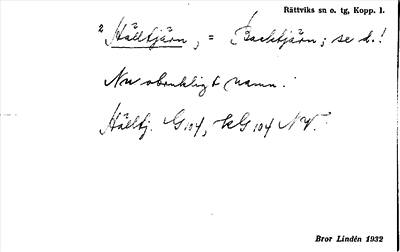 Rättviks sn o. tg, Kopp. l.
2 Hälltjärn, = Backtjärn; se d.!
Nu obrukligt namn.
Hälltj. G 104, kG 104 NV.